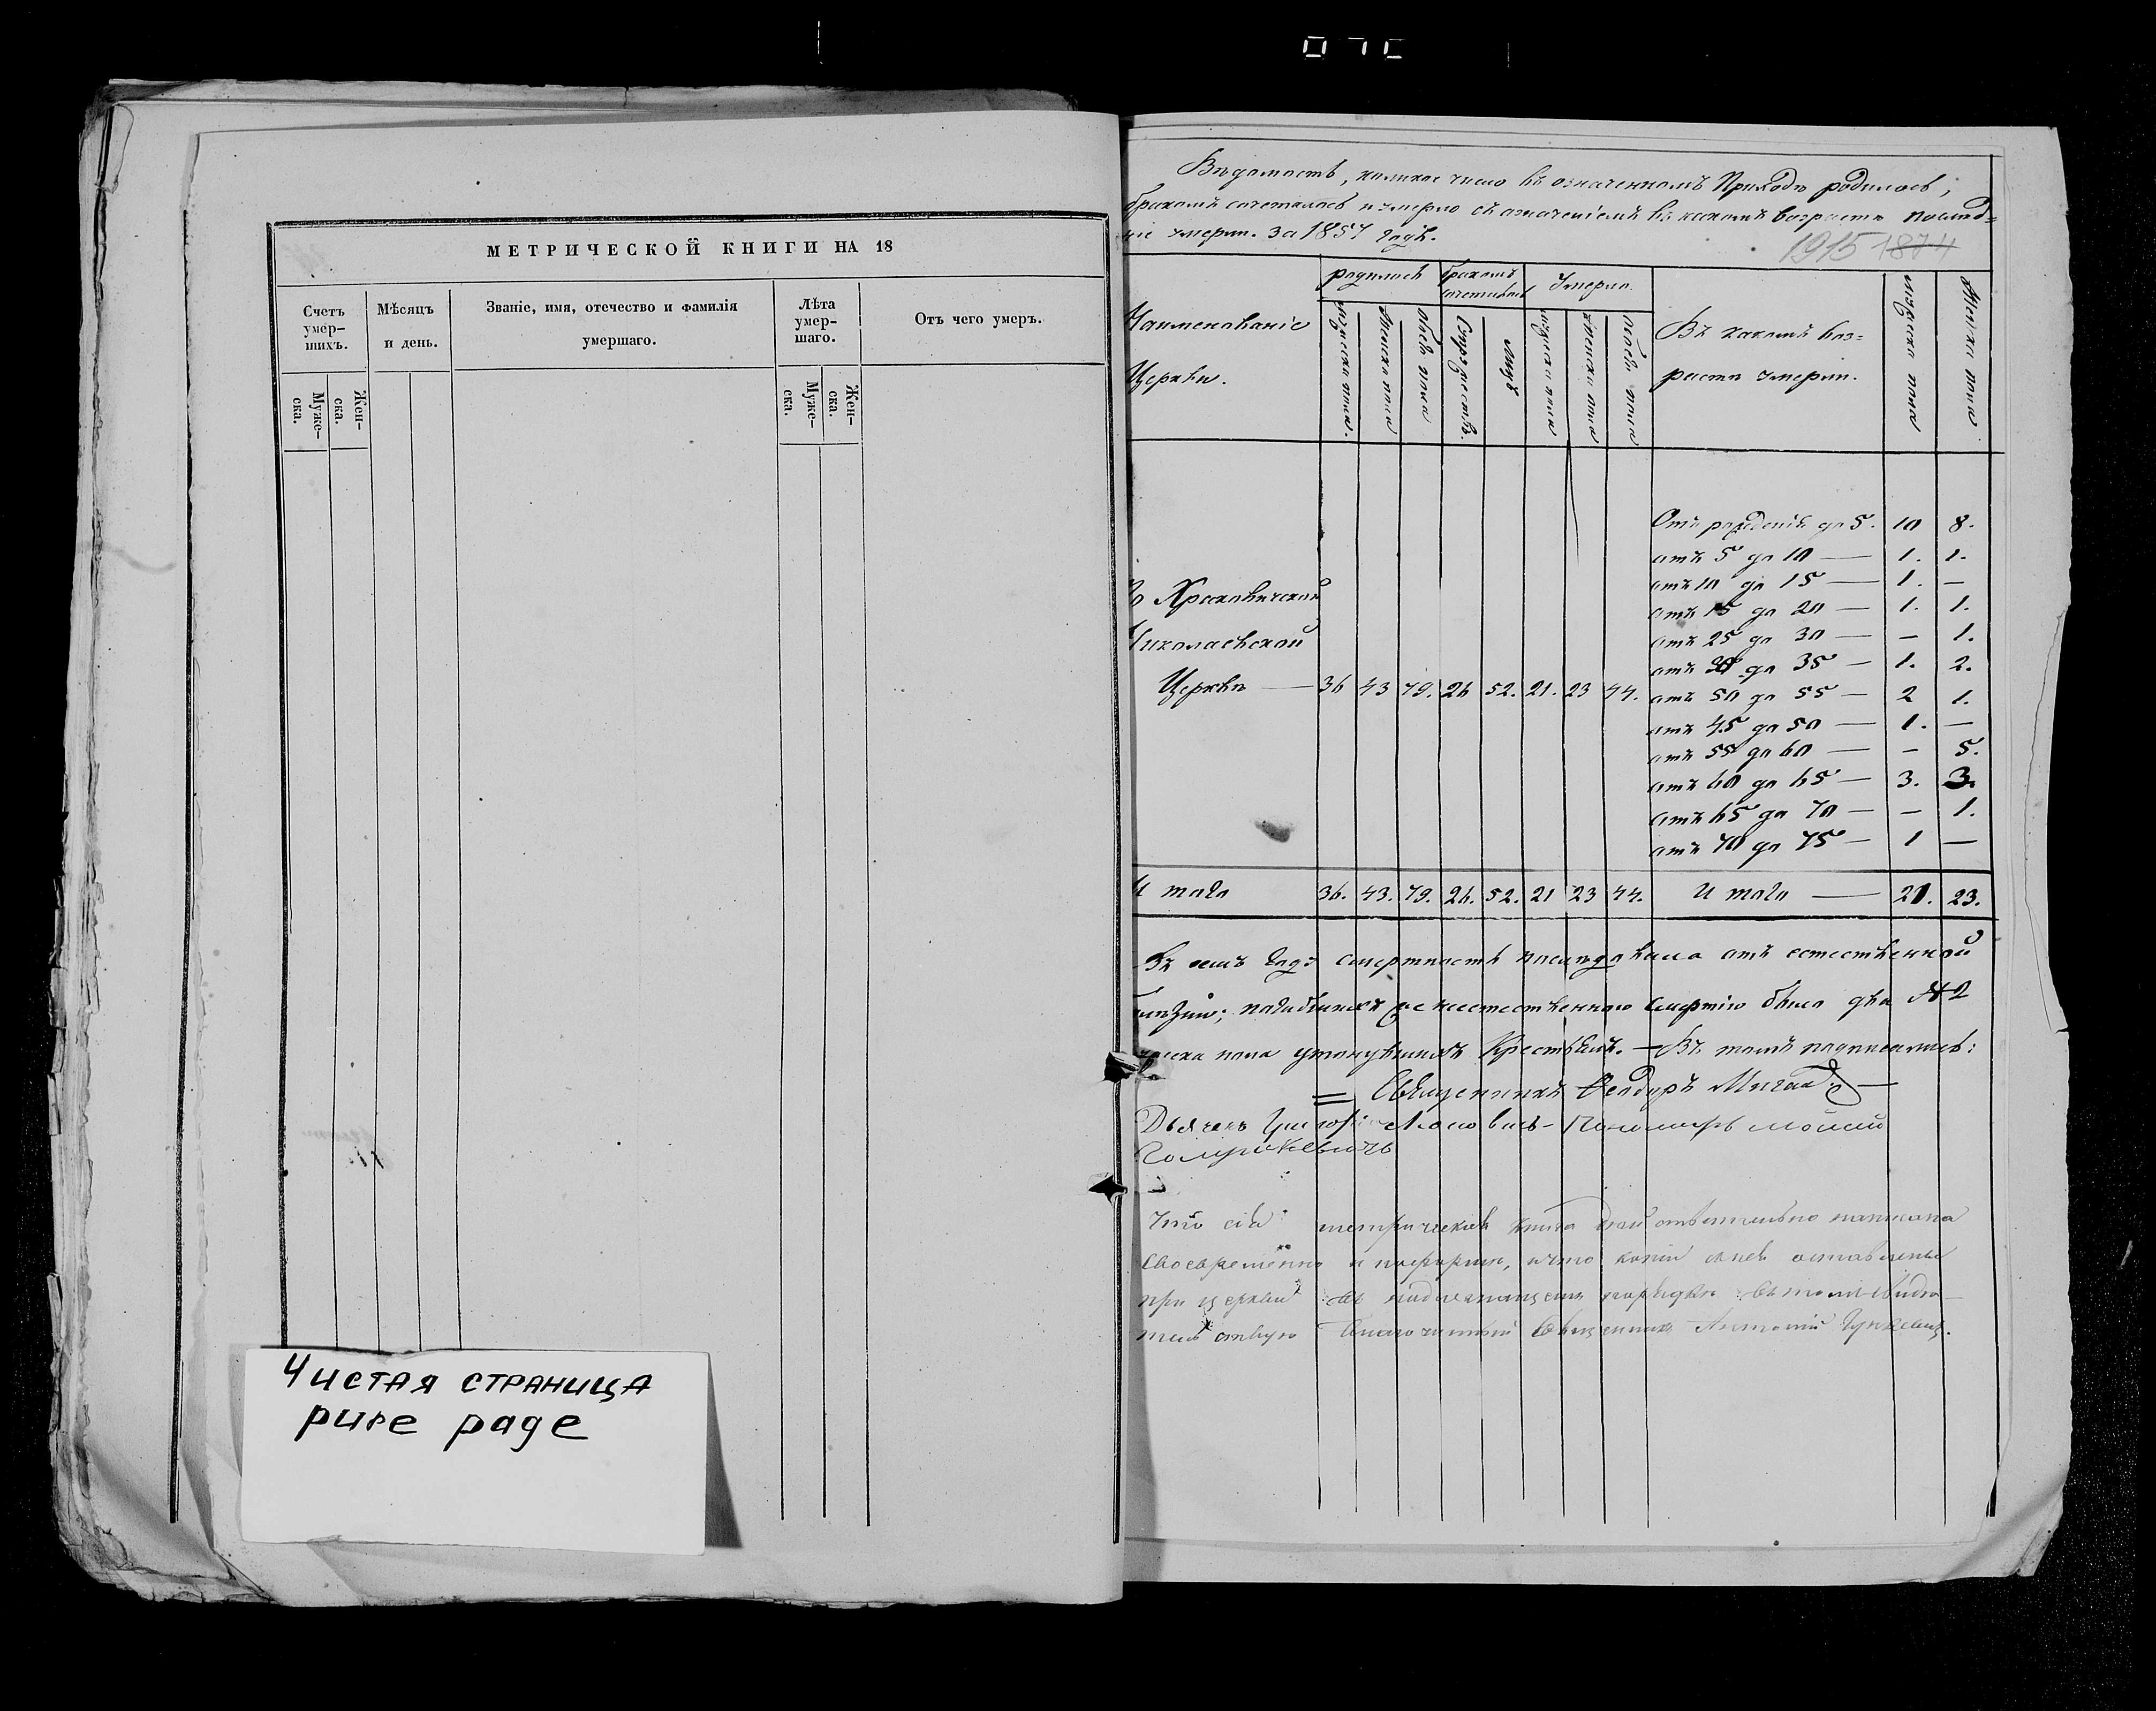 МЕТРИЧЕСКОЙ КНИГИ НА 18
Счетъ умер-шихъ.
Мѣсяцъ и день.
Званіе, имя, отечество и фамилія умершаго.
Лѣта умер-шаго.
Отъ чего умеръ.
Муже-ска.
Жен-ска.
Муже-ска.
Жен-ска.
Чистая страница
pure page
Вѣдомость, коликое число въ означенномъ Приходѣ родилось,
бракомъ сочеталось и умерло съ означеніемъ въ какомъ возрастѣ послѣд=
ніе умерли. За 1857 годъ.
1915 1874
Наименованіе
Церкви.
родилось
бракомъ сочеталось
Умерло.
мужеска пола.
женска пола
обоего пола
Супружествъ.
лицъ
мужеска пола
женска пола
обоего пола
Въ какомъ воз=
растѣ умерли.
мужеска пола
Женска пола.
Отъ рожденія до 5. 10 8.
отъ 5 до 10 — 1. 1.
отъ 10 до 15 — 1. —
отъ 15 до 20 — 1. 1.
отъ 25 до 30 — — 1.
отъ 30 до 35 — 1. 2.
Николаевской
Церкви — 36 43 79. 26 52. 21. 23 44.
отъ 50 до 55 — 2 1.
отъ 45 до 50 — 1. —
отъ 55 до 60 — — 5.
отъ 60 до 65 — 3. 3.
отъ 65 до 70 — — 1.
отъ 70 до 75 — 1 —
Итого 36. 43. 79. 26. 52. 21 23 44. Итого — 21. 23.
Въ семъ годѣ смертность послѣдовала отъ естественной
болѣзни; погибшихъ неестественною смертію было два № 2
мужеска пола утонувшихъ Крестьянъ. — Въ томъ подписались:
= Священникъ Ѳеодоръ
Дьячекъ Пономарь Моисей
Что сія метрическая книга написана
своевременно и что копіи съ нея оставлены
при церкви въ надлежащемъ порядкѣ въ томъ свидѣ-
тельствую Благочинный Священникъ Антоній